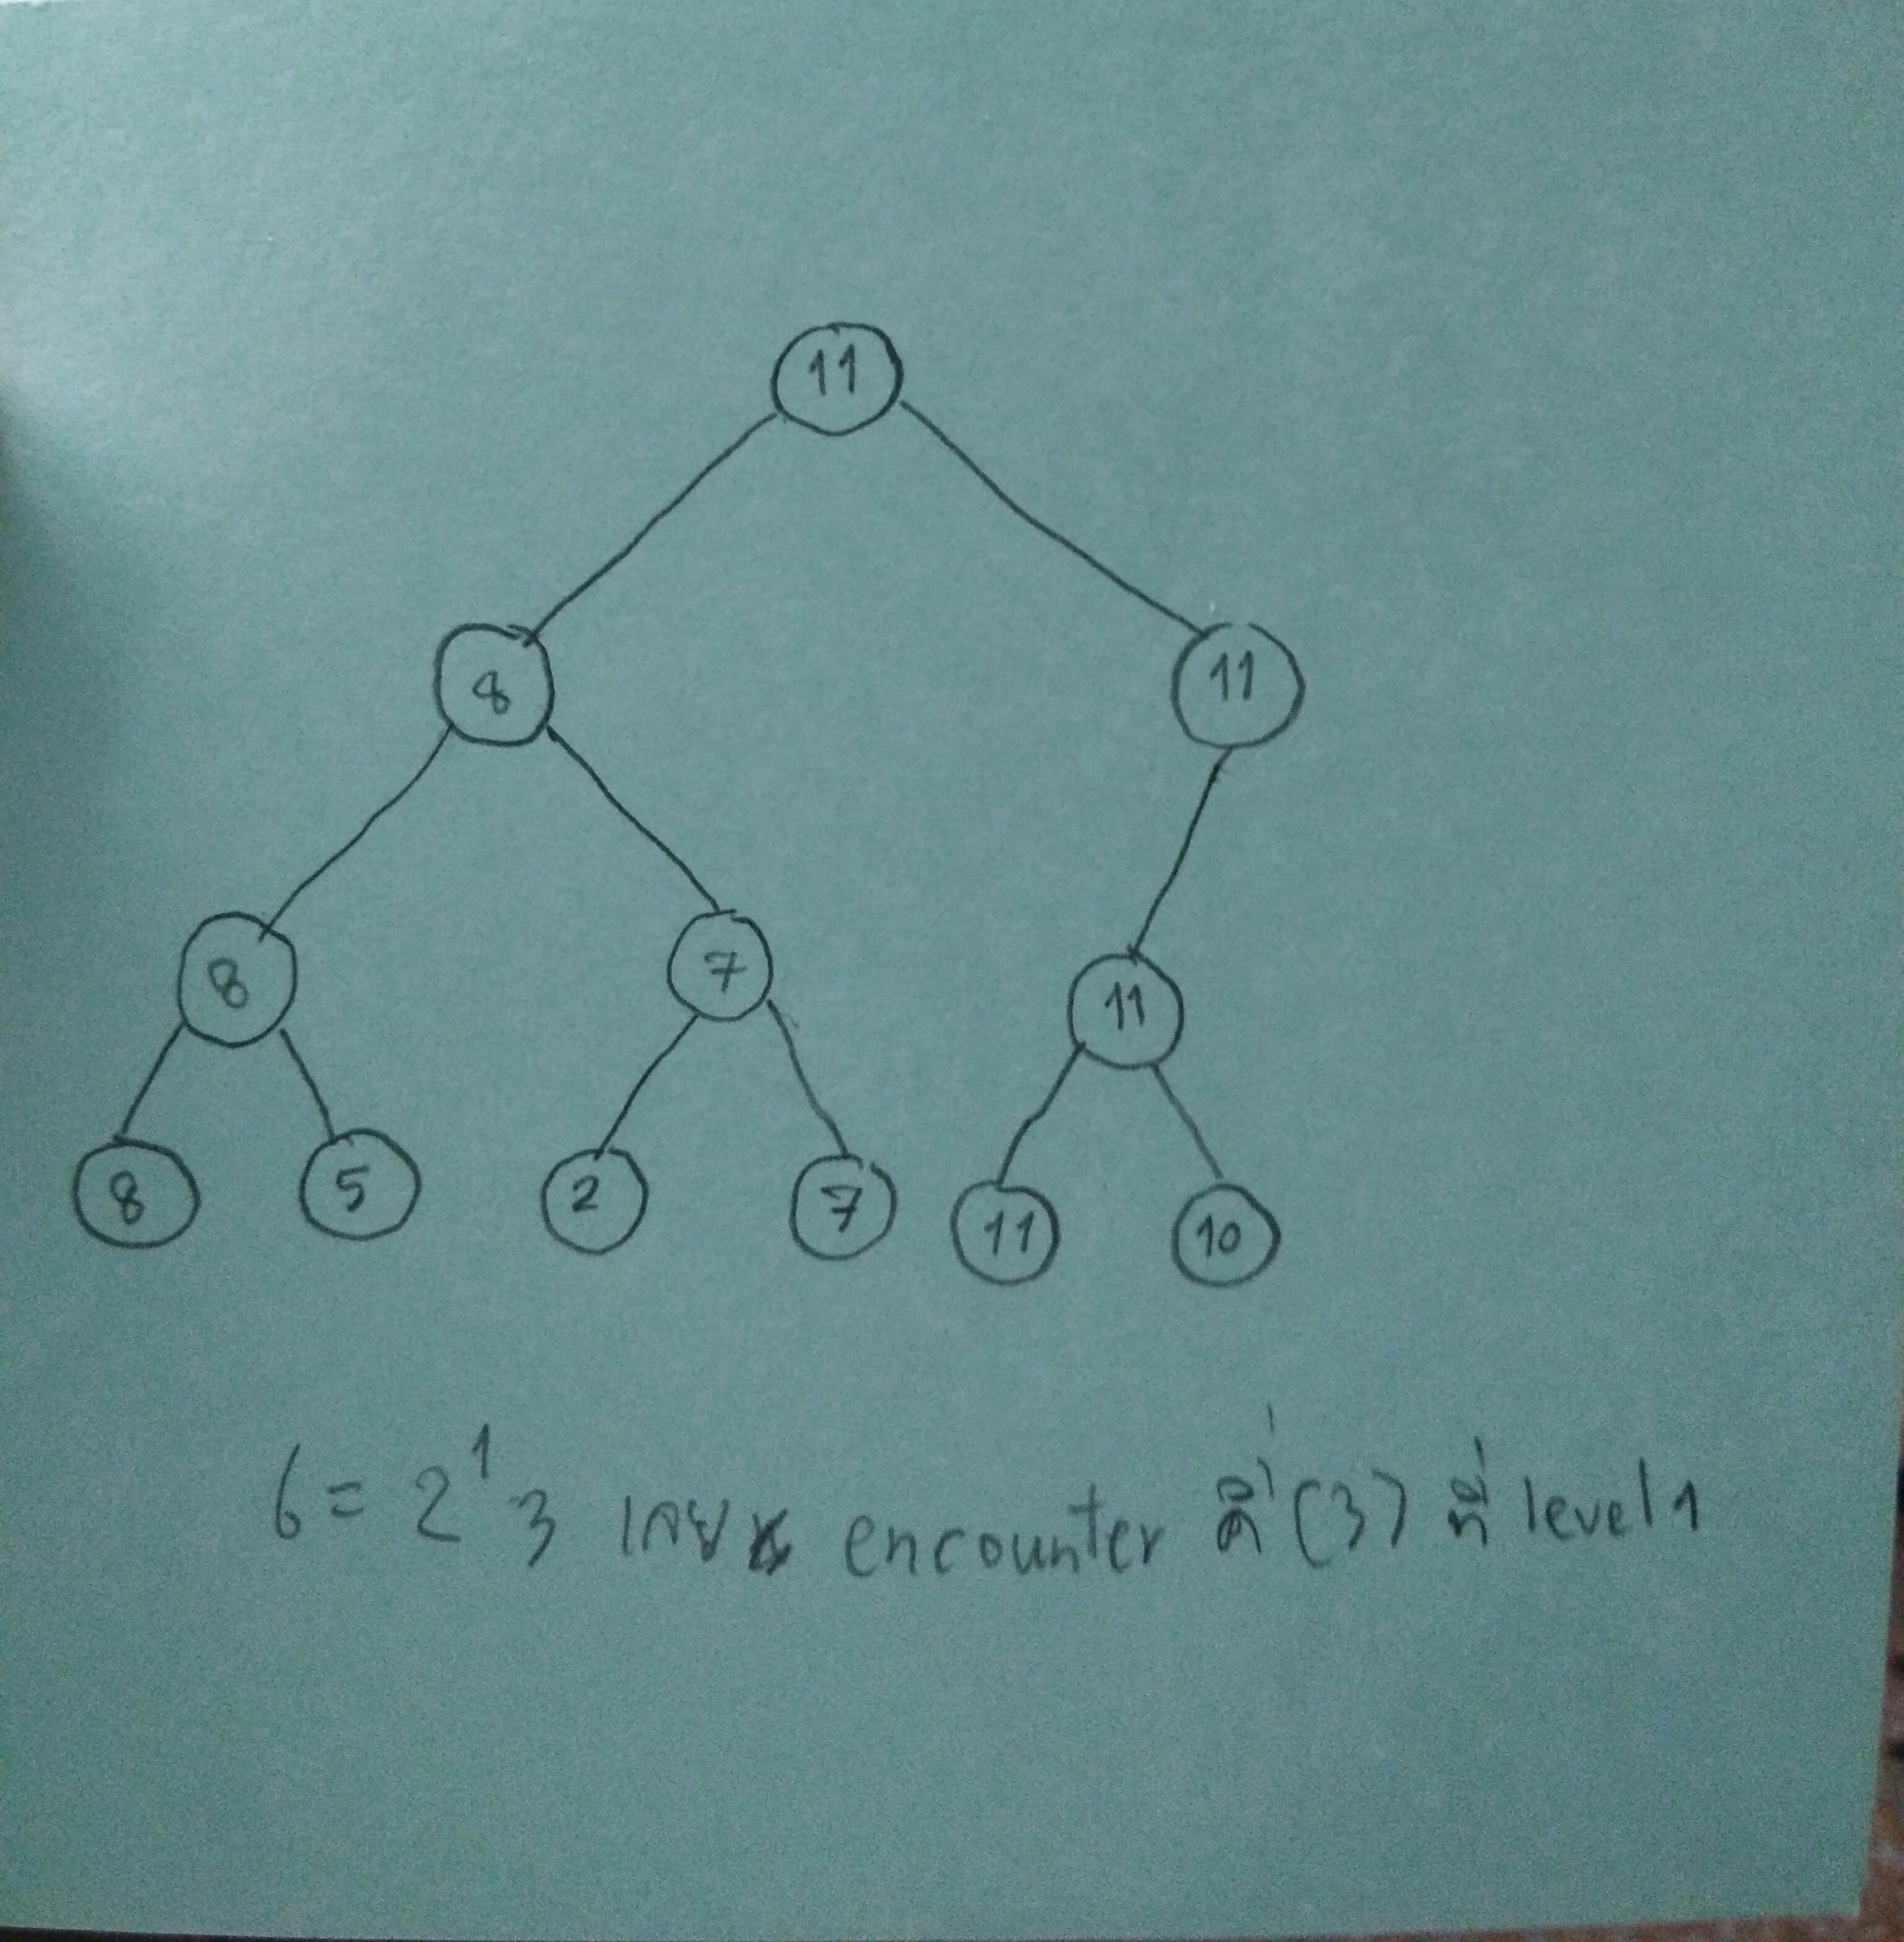 11
8 11
8 7 11
8 5 2 7 11 10
6 = 2¹3 เลย encounter คี่ (3) ที่ level 1